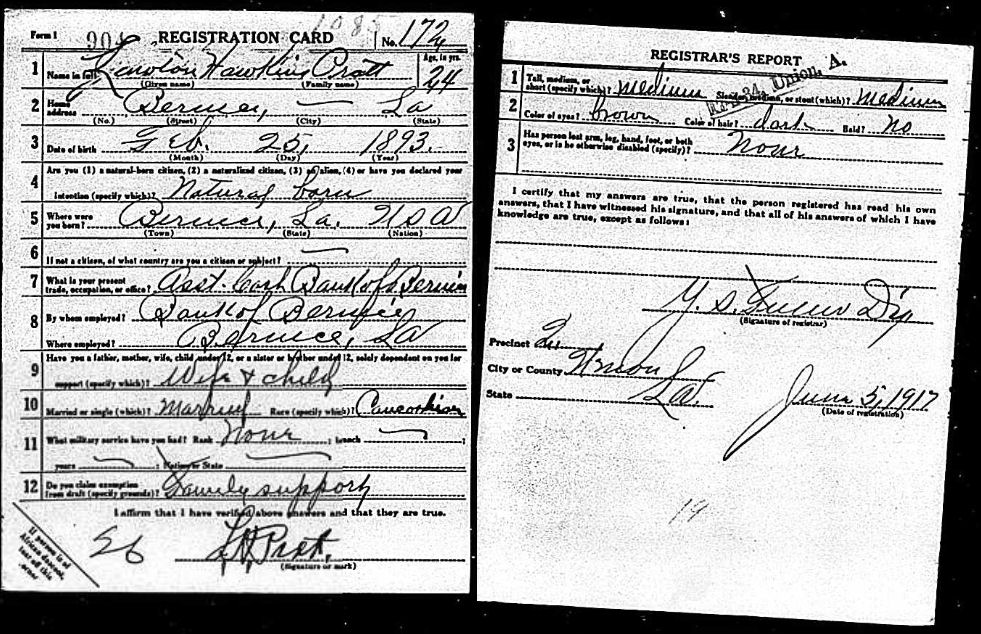 Form 1 REGISTRATION CARD No. 172
1 Name in full Lawton Hawkins Pratt Age, in yrs. 24
(Given name) (Family name)
2 Home address Bernice, — La
(No.) (Street) (City) (State)
3 Date of birth Feb. 25, 1893.
(Month) (Day) (Year)
Are you (1) a natural-born citizen, (2) a naturalized citizen, (3) an alien, (4) or have you declared your
4 intention (specify which)? Natural born
5 Where were you born? Bernice, La. USA
(Town) (State) (Nation)
6 If not a citizen, of what country are you a citizen or subject? —
7 What is your present trade, occupation, or office? Asst. Cash Bank of Bernice
8 By whom employed? Bank of Bernice
Where employed? Bernice, La
9 Have you a father, mother, wife, child under 12, or a sister or brother under 12, solely dependent on you for
support (specify which)? Wife & child
10 Married or single (which)? Married Race (specify which)? Caucasian
11 What military service have you had? Rank None ; branch — ;
years — ; Nation or State —
12 Do you claim exemption from draft (specify grounds)? Family support
I affirm that I have verified above answers and that they are true.
L H Pratt.
(Signature or mark)
If person is of
African descent,
tear off this
corner
REGISTRAR'S REPORT
1 Tall, medium, or short (specify which)? Medium Slender, medium, or stout (which)? Medium
2 Color of eyes? brown Color of hair? dark Bald? No
3 Has person lost arm, leg, hand, foot, or both eyes, or is he otherwise disabled (specify)? None
I certify that my answers are true, that the person registered has read his own
answers, that I have witnessed his signature, and that all of his answers of which I have
knowledge are true, except as follows:
(Signature of registrar)
Precinct
City or County Union
State La.
June 5, 1917
(Date of registration)
19